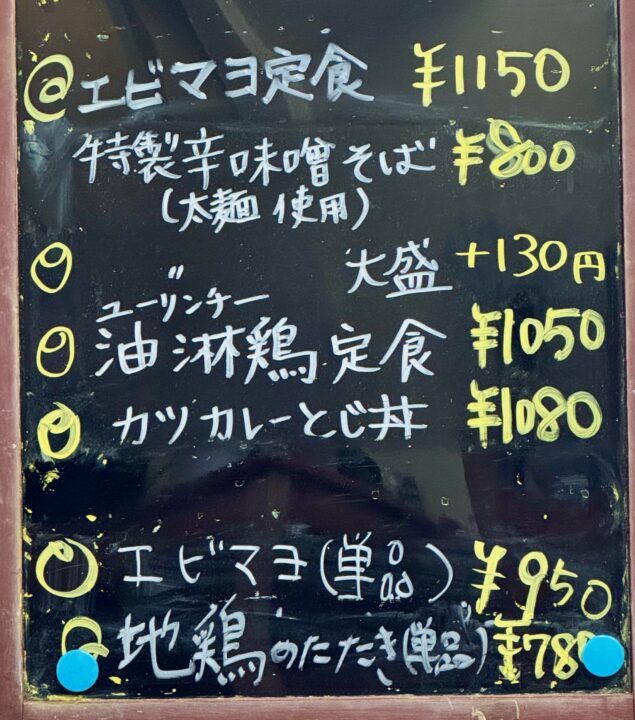 エビマヨ定食 ¥1150
特製辛味噌そば ¥800
(太麺 使用)
大盛 +130円
ユーリンチー
油淋鶏定食 ¥1050
カツカレーとじ丼 ¥1080
エビマヨ(単品) ¥950
地鶏のたたき(単品) ¥78